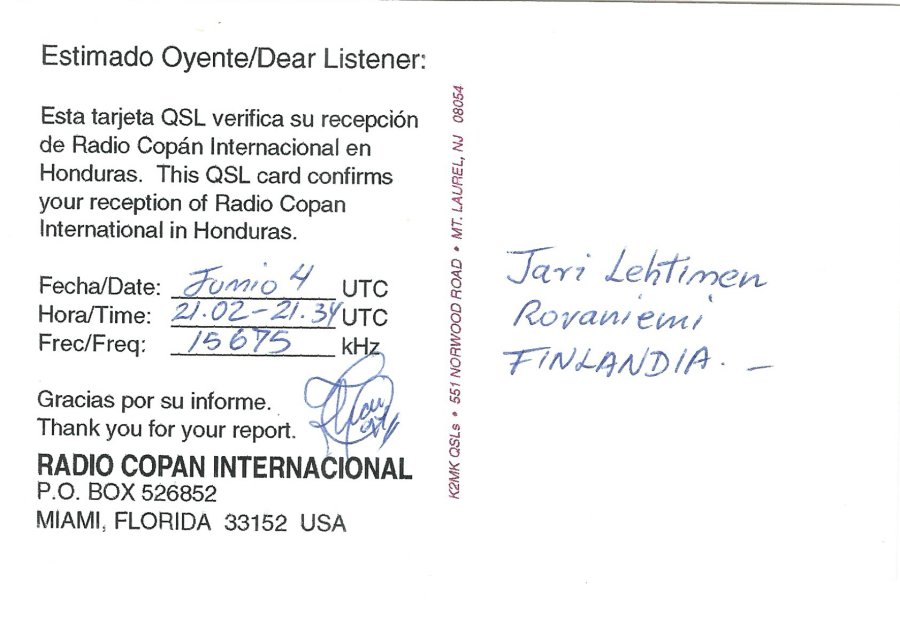 Estimado Oyente/Dear Listener:
Esta tarjeta QSL verifica su recepción
de Radio Copán Internacional en
Honduras. This QSL card confirms
your reception of Radio Copan
International in Honduras.
Fecha/Date: Junio 4 UTC
Hora/Time: 21.02-21.34 UTC
Frec/Freq: 15675 kHz
Gracias por su informe.
Thank you for your report.
RADIO COPAN INTERNACIONAL
P.O. BOX 526852
MIAMI, FLORIDA 33152 USA
K2MK QSLs • 551 NORWOOD ROAD • MT. LAUREL, NJ 08054
Jari Lehtinen
Rovaniemi
FINLANDIA. —